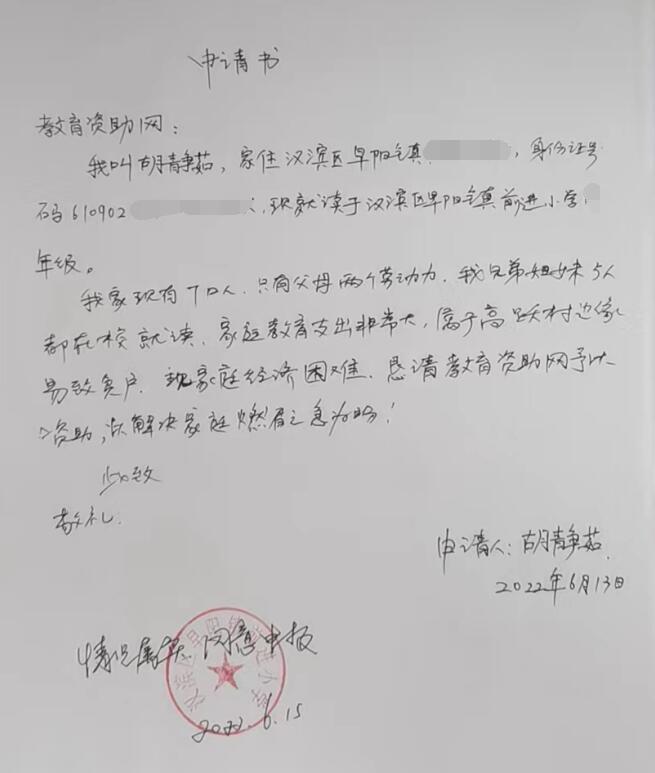 申请书
教育资助网：
我叫胡静茹，家住汉滨区早阳镇，身份证号
码610902，现就读于汉滨区早阳镇前进小学
年级。
我家现有7口人，只有父母两个劳动力，我兄弟姐妹5人
都在校就读，家庭教育支出非常大，属于高跃村边缘
易致贫户，现家庭经济困难，恳请教育资助网予以
资助，以解决家庭燃眉之急为盼！
此致
敬礼.
申请人：胡静茹
2022年6月13日
情况属实，同意申报
汉滨区早阳镇前进小学
2022.6.15